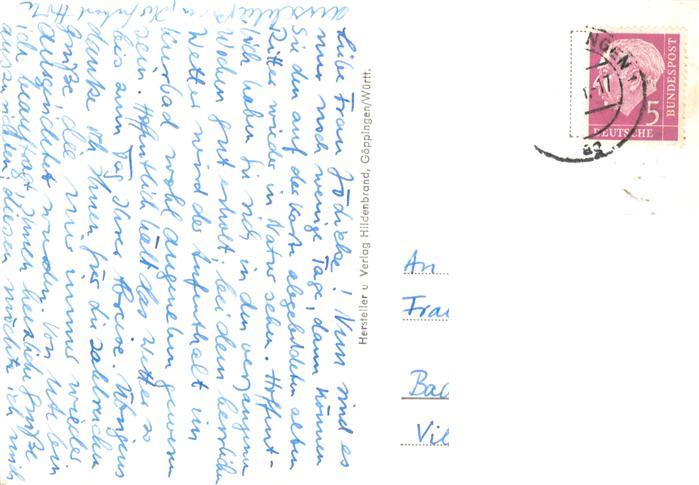 Liebe Frau Jödicke! Nun sind es
nur noch wenige Tage, dann können
Sie den auf der Karte abgebildeten alten
Ritter wieder in Natur sehen. Hoffent-
lich haben Sie sich in den vergangenen
Wochen gut erholt, bei dem herrlichen
Wetter wird der Aufenthalt im
bad wohl angenehm gewesen
sein. Hoffentlich hält das Wetter so
bis zum Tag Ihrer Abreise. Übrigens
danke ich Ihnen für die zahlreichen
Grüße die mir immer wieder
ausgerichtet wurden. Von Ute bin
ich beauftragt, Ihnen herzliche Grüße
auszurichten, diesen möchte ich mich
Hersteller u. Verlag Hildenbrand, Göppingen/Württ.
NGEN
5
DEUTSCHE
BUNDESPOST
An
Frau
Bad
Vil